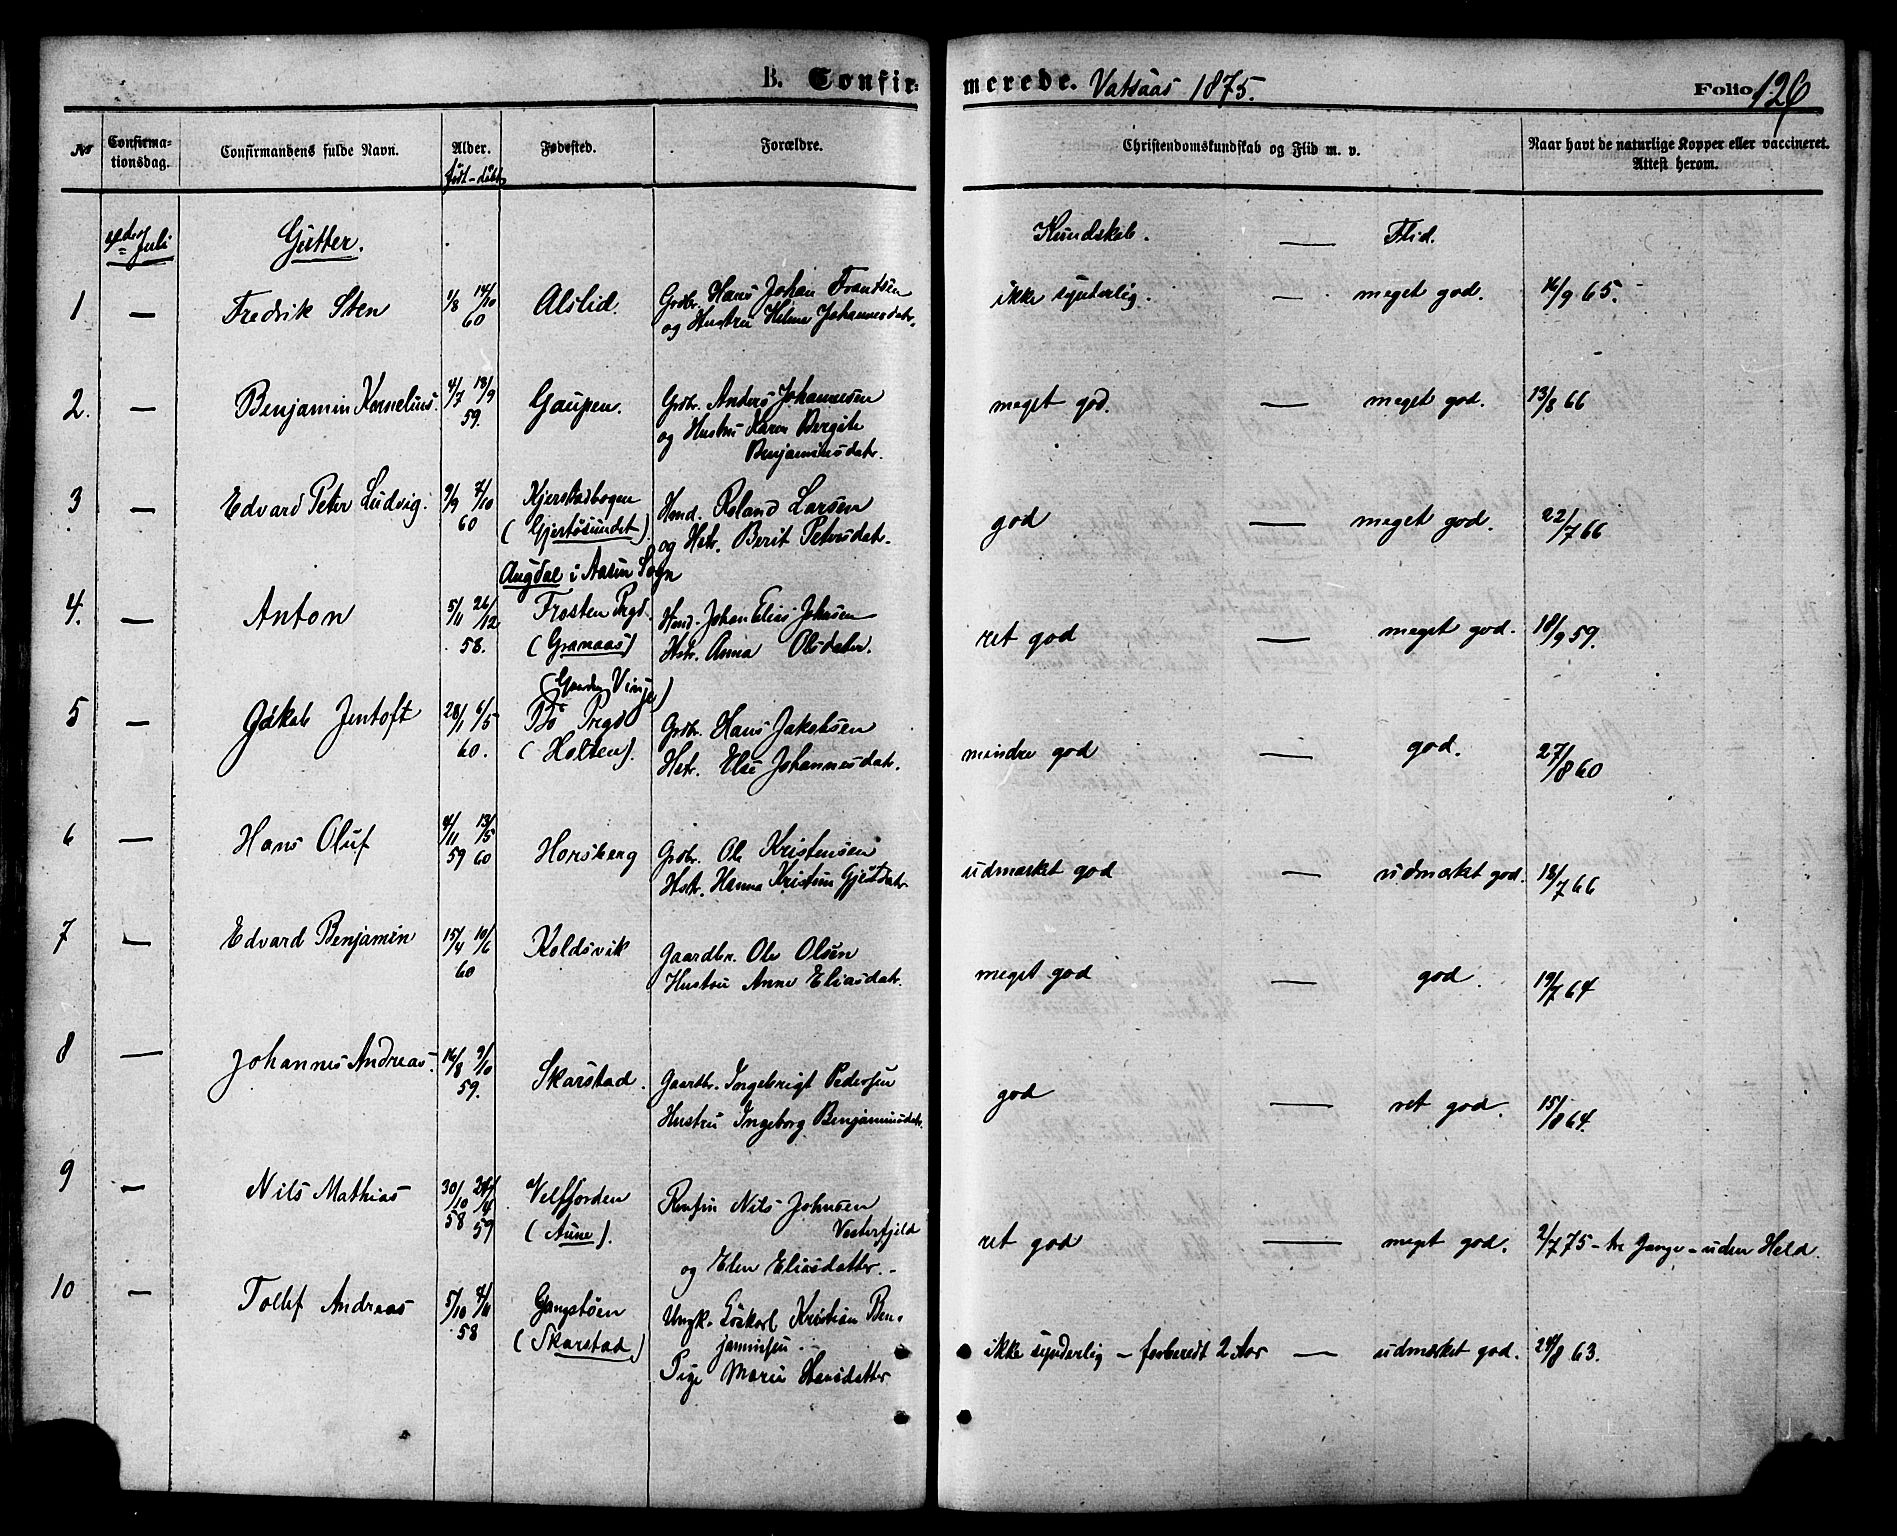 B. Confirmerede. Vatsåas 1875. Folio 126
№ Confirmationsdag. Confirmandens fulde Navn. Alder. født - døbt Fødested. Forældre. Christendomskundskab og Flid m. v. Naar havt de naturlige Kopper eller vaccineret. Attest herom.
4de Juli Gutter. Kundskab. — Flid.
1 — Fredrik Sten 1/8 14/10 60 Alslid. Grdbr. Hans Johan Frantsen
og Hustru Helene Johannesdatr. ikke synderlig. — meget god. 16/9 65.
2. — Benjamin Kornelius. 4/7 18/9 59. Gaupen. Grdbr. Anders Johannesen
og Hustru Karen Bergite
Benjaminsdatr. meget god. — meget god. 13/8 66
3 — Edvard Peter Ludvig. 9/9 7/10 60 Kjerstadbogen
(Gjertösundet) Hmd. Roland Larsen
og Hstr. Berit Petersdatr. god — meget god. 22/7 66
4. — Anton 5/11 26/12 58. Augdal i Aasen Sogn
Frosten Prgd.
(Granaas) Hmd. Johan Elias Johnsen
Hstr. Anna Olsdatter. ret god — meget god. 18/9 59.
5 — Jakob Jentoft 28/1 6/5 60. (Gaarden Vinje)
Bö Prgd
(Holten). Grdbr. Hans Jakobsen
Hstr. Else Johannesdatr. mindre god — god. 27/8 60
6 — Hans Oluf 4/11 59 13/5 60 Hornsberg Grdbr. Ole Kristensen
Hstr. Hanna Kristine Gjertsdatr. udmærket god — udmærket god. 18/7 66
7 — Edvard Benjamin 15/4 10/6 60 Koldsvik Gaardbr. Ole Olsen
Hustru Anne Eliasdatr. meget god — god. 19/7 64
8 — Johannes Andreas. 16/8 9/10 59. Skarstad. Gaardbr. Ingebrigt Pedersen
Hustru Ingeborg Benjaminsdatr. god — ret god. 15/8 64.
9 — Nils Mathias 30/10 58 24/4 59 Velfjorden
(Aune). Renfin Nils Johnsen
Vesterfjeld
og Elen Eliasdatter. ret god — meget god. 2/7 75 - tre Gange - uden Held.
10 — Tollef Andreas 5/10 7/11 58 Gangstöen
(Skarstad) Ungk. Löskarl Kristian Ben-
jaminsen
Pige Maria Hansdatter ikke synderlig - forberedt 2 Aar — udmærket god. 24/8 63.